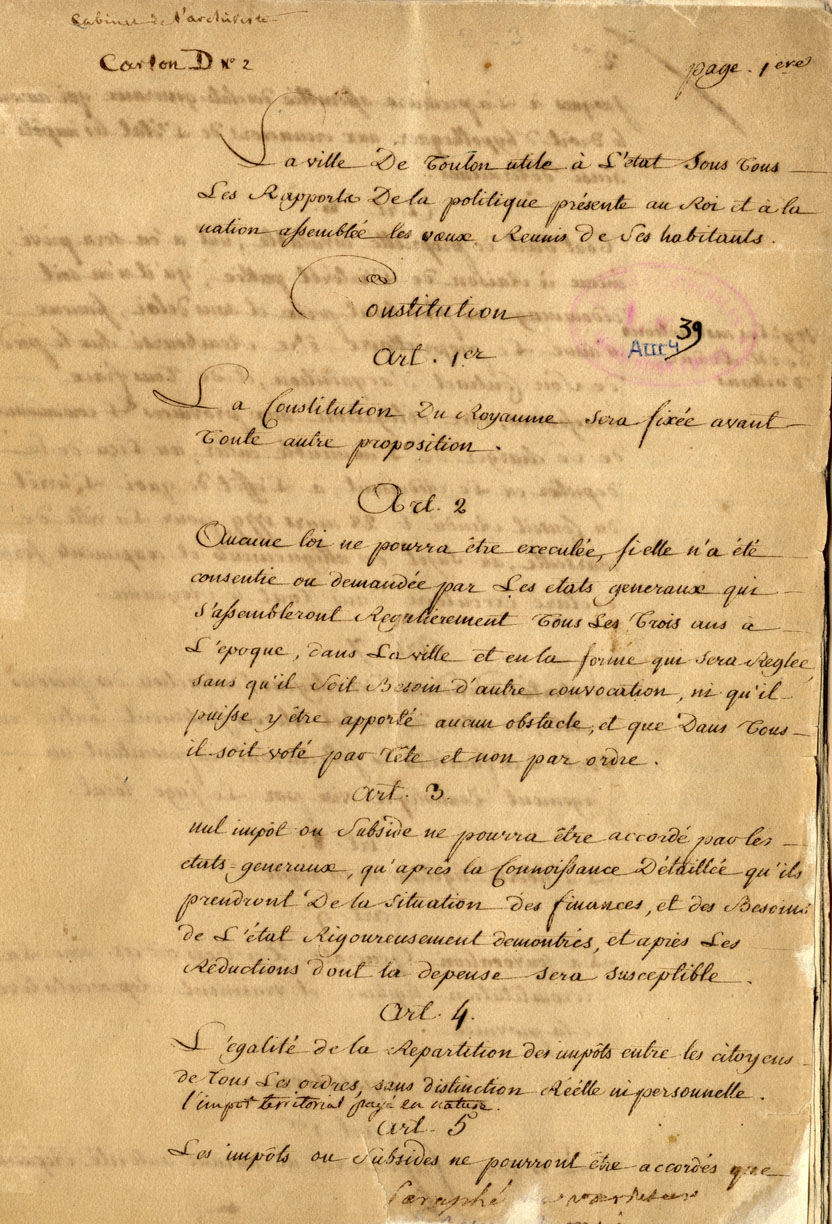 Cabinet de l'archiviste
Carton D N° 2
page. 1ere
La ville De Toulon utile à L'état Sous Tous
Les Rapports De la politique présente au Roi et à la
nation assemblée les vœux Reunis de Ses habitants.
Constitution
39
AIII4
Art. 1er
La Constitution Du Royaume sera fixée avant
Toute autre proposition.
Art. 2
Aucune loi ne pourra être executée, si elle n'a été
consentie ou demandée par Les etats generaux qui
S'assembleront Regulierement Tous Les Trois ans a
L'époque, dans La ville et en la forme qui sera Reglée,
sans qu'il Soit Besoin d'autre convocation, ni qu'il
puisse y être apporté aucun obstacle, et que Dans Tous
il soit voté par Tête et non par ordre.
Art. 3.
nul impôt ou Subside ne pourra être accordé par les
etats-generaux, qu'après la Connoissance Détaillée qu'ils
prendront De la Situation des finances, et des Besoins
de L'état Rigoureusement demontrés, et après Les
Reductions dont la depense sera susceptible.
Art. 4.
L'égalité de la Repartition des impôts entre les citoyens
de Tous Les ordres, sans distinction Réélle ni personnelle.
l'impot territorial payé en nature.
Art. 5
Les impôts ou Subsides ne pourront être accordés que
Paraphé